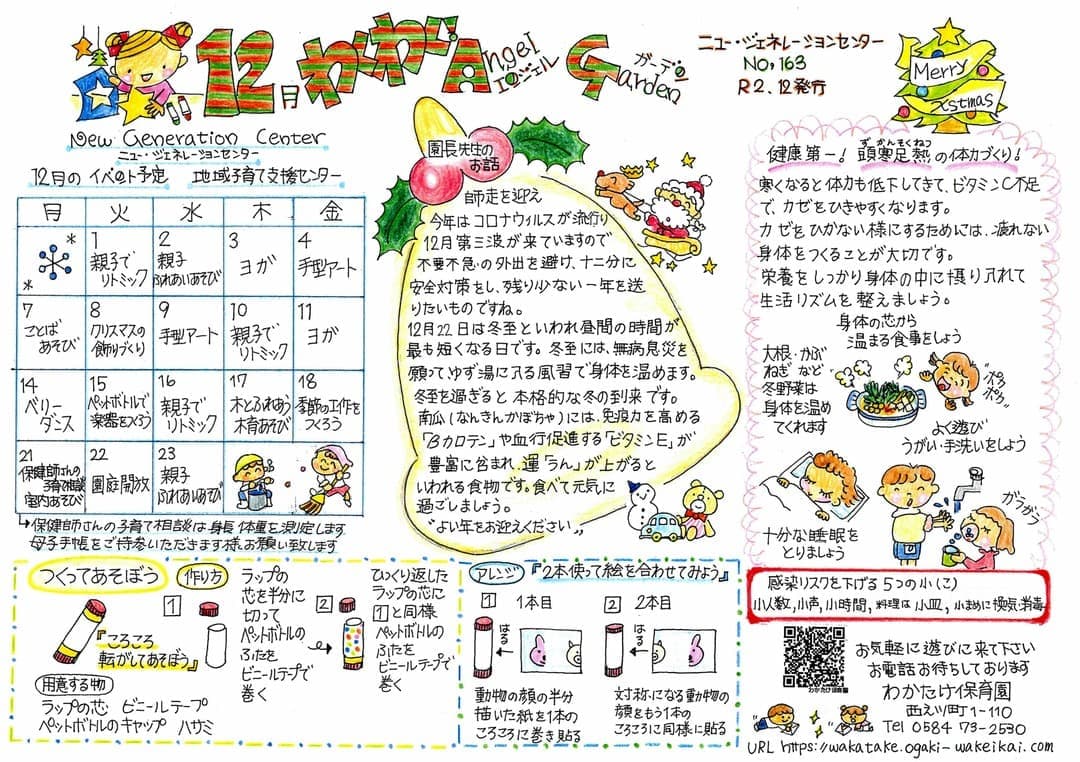 12月 わいわい Angel Garden
エンジェル ガーデン
ニュー・ジェネレーションセンター
NO,163
R2.12発行
Merry
Xstmas
New Generation Center
ニュー・ジェネレーションセンター
12月のイベント予定 地域子育て支援センター
月 火 水 木 金
1 親子でリトミック
2 親子ふれあいあそび
3 ヨガ
4 手型アート
7 ことばあそび
8 クリスマスの飾りづくり
9 手型アート
10 親子でリトミック
11 ヨガ
14 ベリーダンス
15 ペットボトルで楽器をつくろう
16 親子でリトミック
17 木とふれあう木育あそび
18 季節の工作をつくろう
21 保健師さんの子育て相談 室内あそび
22 園庭開放
23 親子ふれあいあそび
→保健師さんの子育て相談は身長体重を測定します
母子手帳をご持参いただきます様お願い致します
園長先生の
お話
師走を迎え
今年はコロナウィルスが流行り
12月第三波が来ていますので
不要不急の外出を避け、十二分に
安全対策をし、残り少ない一年を送
りたいものですね。
12月22日は冬至といわれ昼間の時間が
最も短くなる日です。冬至には、無病息災を
願ってゆず湯に入る風習で身体を温めます。
冬至を過ぎると本格的な冬の到来です。
南瓜(なんきんかぼちゃ)には、免疫力を高める
「Bカロテン」や血行促進する「ビタミンE」が
豊富に含まれ、運「うん」が上がると
いわれる食物です。食べて元気に
過ごしましょう。
"よい年をお迎えください"
健康第一! 頭寒足熱の体力づくり!
ずかんそくねつ
寒くなると体力も低下してきて、ビタミンC不足
で、カゼをひきやすくなります。
カゼをひかない様にするためには、疲れない
身体をつくることが大切です。
栄養をしっかり身体の中に摂り入れて
生活リズムを整えましょう。
身体の芯から
温まる食事をしよう
大根・かぶ
ねぎなど
冬野菜は
身体を温め
てくれます
"ポカポカ"
よく遊び
うがい・手洗いをしよう
ガラガラ
十分な睡眠を
とりましょう
感染リスクを下げる5つの小(こ)
小人数,小声,小時間,料理は小皿,小まめに換気・消毒
つくってあそぼう
『ころころ
転がしてあそぼう』
用意する物
ラップの芯 ビニールテープ
ペットボトルのキャップ ハサミ
作り方
1
ラップの
芯を半分に
切って
ペットボトルの
ふたを
ビニールテープで
巻く
2
ひっくり返した
ラップの芯に
1と同様
ペットボトルの
ふたを
ビニールテープで
巻く
アレンジ 『2本使って絵を合わせてみよう』
1 1本目
はる
動物の顔の半分
描いた紙を1本の
ころころに巻き貼る
2 2本目
はる
対称になる動物の
顔をもう1本の
ころころに同様に貼る
わかたけ保育園
お気軽に遊びに来て下さい
お電話お待ちしております
わかたけ保育園
西之川町1-110
Tel 0584 73-2530
URL https://wakatake.ogaki-wakeikai.com